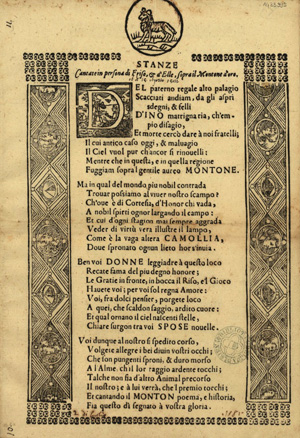 STANZE
Cantate in persona di Friso, & d'Elle, sopra il Montone d'oro,
DEL paterno regale alto palagio
Scacciati andiam, da gli aspri
sdegni, & felli
D'INO matrigna ria, ch'em-
pio disagio,
Et morte cercò dare à noi fratelli;
Il cui antico caso oggi, & maluagio
Il Ciel vuol pur chancor si rinouelli:
Mentre che in questa, e in quella regione
Fuggiam sopra l gentile aureo MONTONE.
Ma in qual del mondo, piu nobil contrada
Trouar possiamo al viuer nostro scampo?
Ch'oue è di Cortesia, d'Honor chi vada,
A nobil spirti ognor largando il campo:
Et cui d'ogni stagion mai sempre aggrada
Veder di virtù vera illustre il lampo;
Come è la vaga altera CAMOLLIA,
Doue spronato ognun lieto hor s'inuia.
Ben voi DONNE leggiadrè à questo loco
Recate fama del piu degno honore;
Le Gratie in fronte, in bocca il Riso, e'l Gioco
Hauete voi; per voi sol regna Amore:
Voi, fra dolci pensier, porgete loco
A quei, che scaldon saggio, ardito cuore:
Et qual ornano il ciel nascenti stelle,
Chiare surgon tra voi SPOSE nouelle.
Voi dunque al nostro sì spedito corso,
Volgete allegre i bei diuin vostri occhi;
Che son pungenti sproni, & duro morso
A i Alme. ch i lor raggio ardente tocchi;
Talche non fia d'altro Animal precorso
Il nostro; e à lui verrà, che l pretio tocchi;
Et cantando il MONTON poema, e historia,
Fia questo dì segnato à vostra gloria.